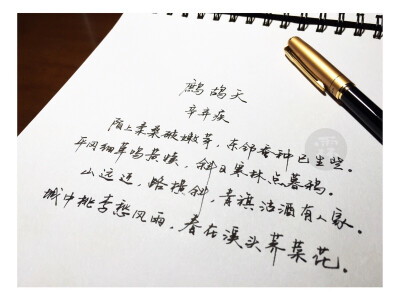 鹧鸪天
辛弃疾
陌上柔桑破嫩芽，东邻蚕种已生些。
平冈细草鸣黄犊，斜日寒林点暮鸦。
山远近，路横斜，青旗沽酒有人家。
城中桃李愁风雨，春在溪头荠菜花。